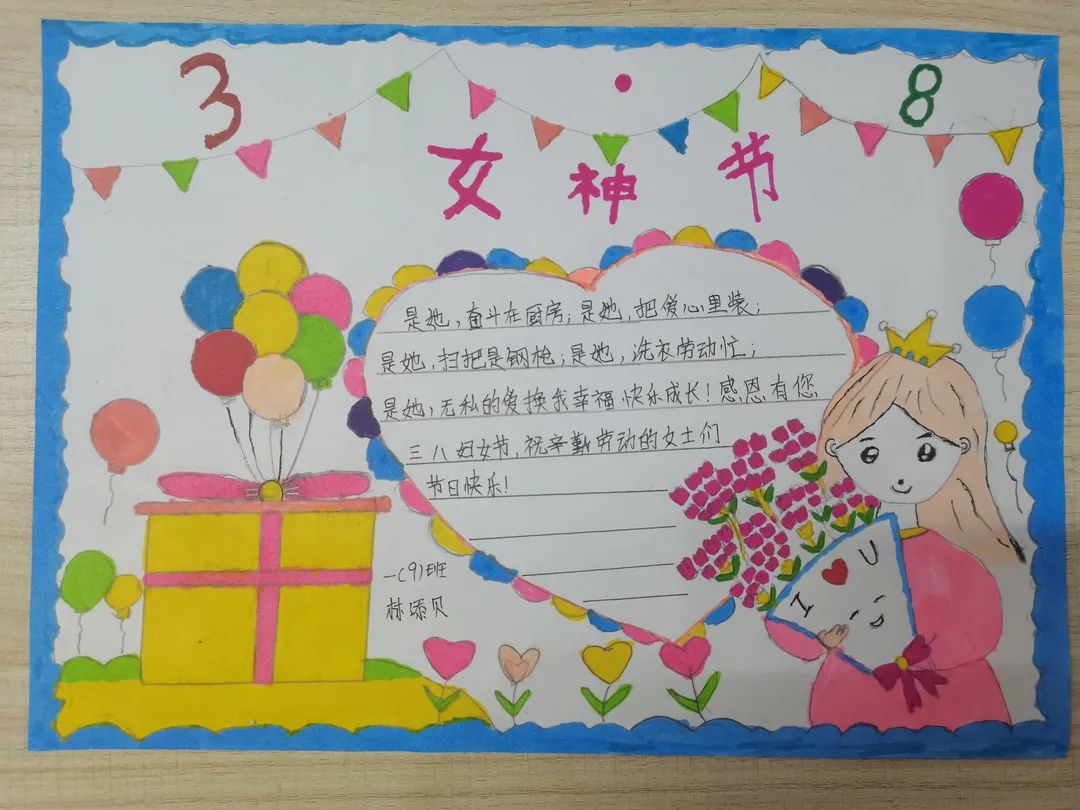 3 · 8
女神节
是她，奋斗在厨房；是她，把爱心里装；
是她，扫把是钢枪；是她，洗衣劳动忙；
是她，无私的爱换我幸福快乐成长！感恩有您
三八妇女节，祝辛勤劳动的女士们
节日快乐！
I ❤ U
一(9)班
林添贝